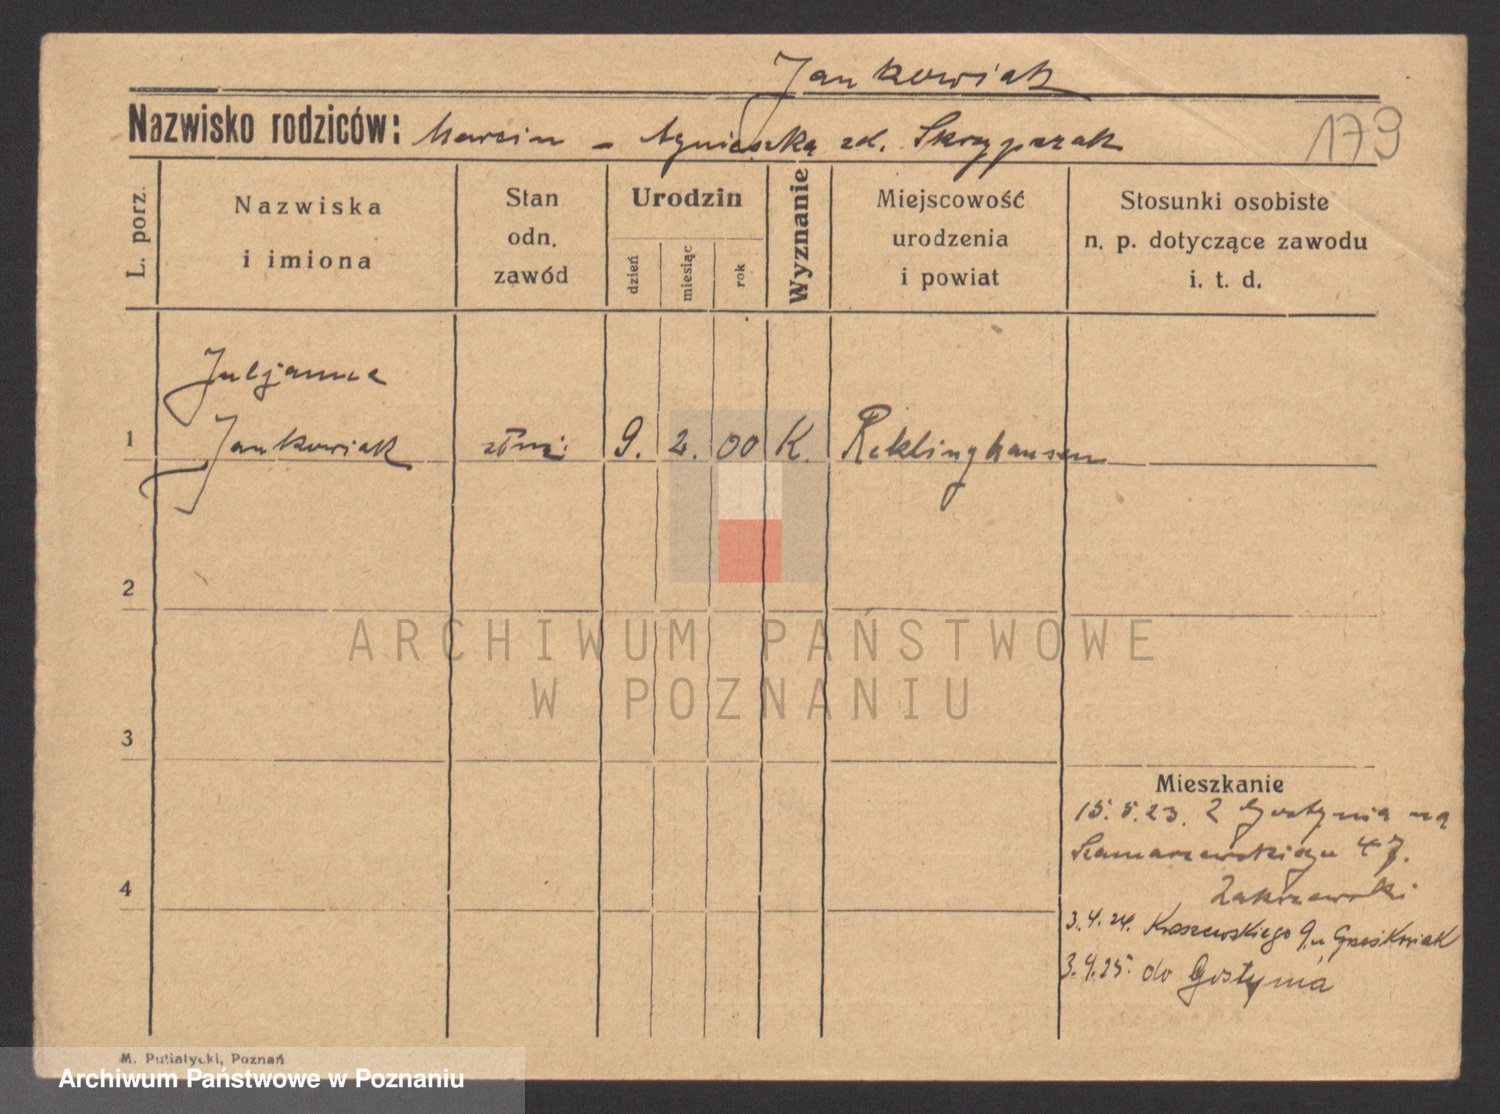 Jankowiak
Nazwisko rodziców: Marcin - Agnieszka zd. Skrzypczak
179
L. porz.
Nazwiska
i imiona
Stan
odn.
zawód
Urodzin
dzień
miesiąc
rok
Wyznanie
Miejscowość
urodzenia
i powiat
Stosunki osobiste
n. p. dotyczące zawodu
i. t. d.
Juljanna
1 Jankowiak służ. 9. 2. 00 K. Reklinghausen
2
ARCHIWUM PAŃSTWOWE
W POZNANIU
3
Mieszkanie
15.5.23. Z Gostynia na
Szamarzewskiego 47.
Zakrzewski
4
3.4.24. Kraszewskiego 9 u Grześkowiak
3.4.25. do Gostynia
M. Putiatycki, Poznań
Archiwum Państwowe w Poznaniu